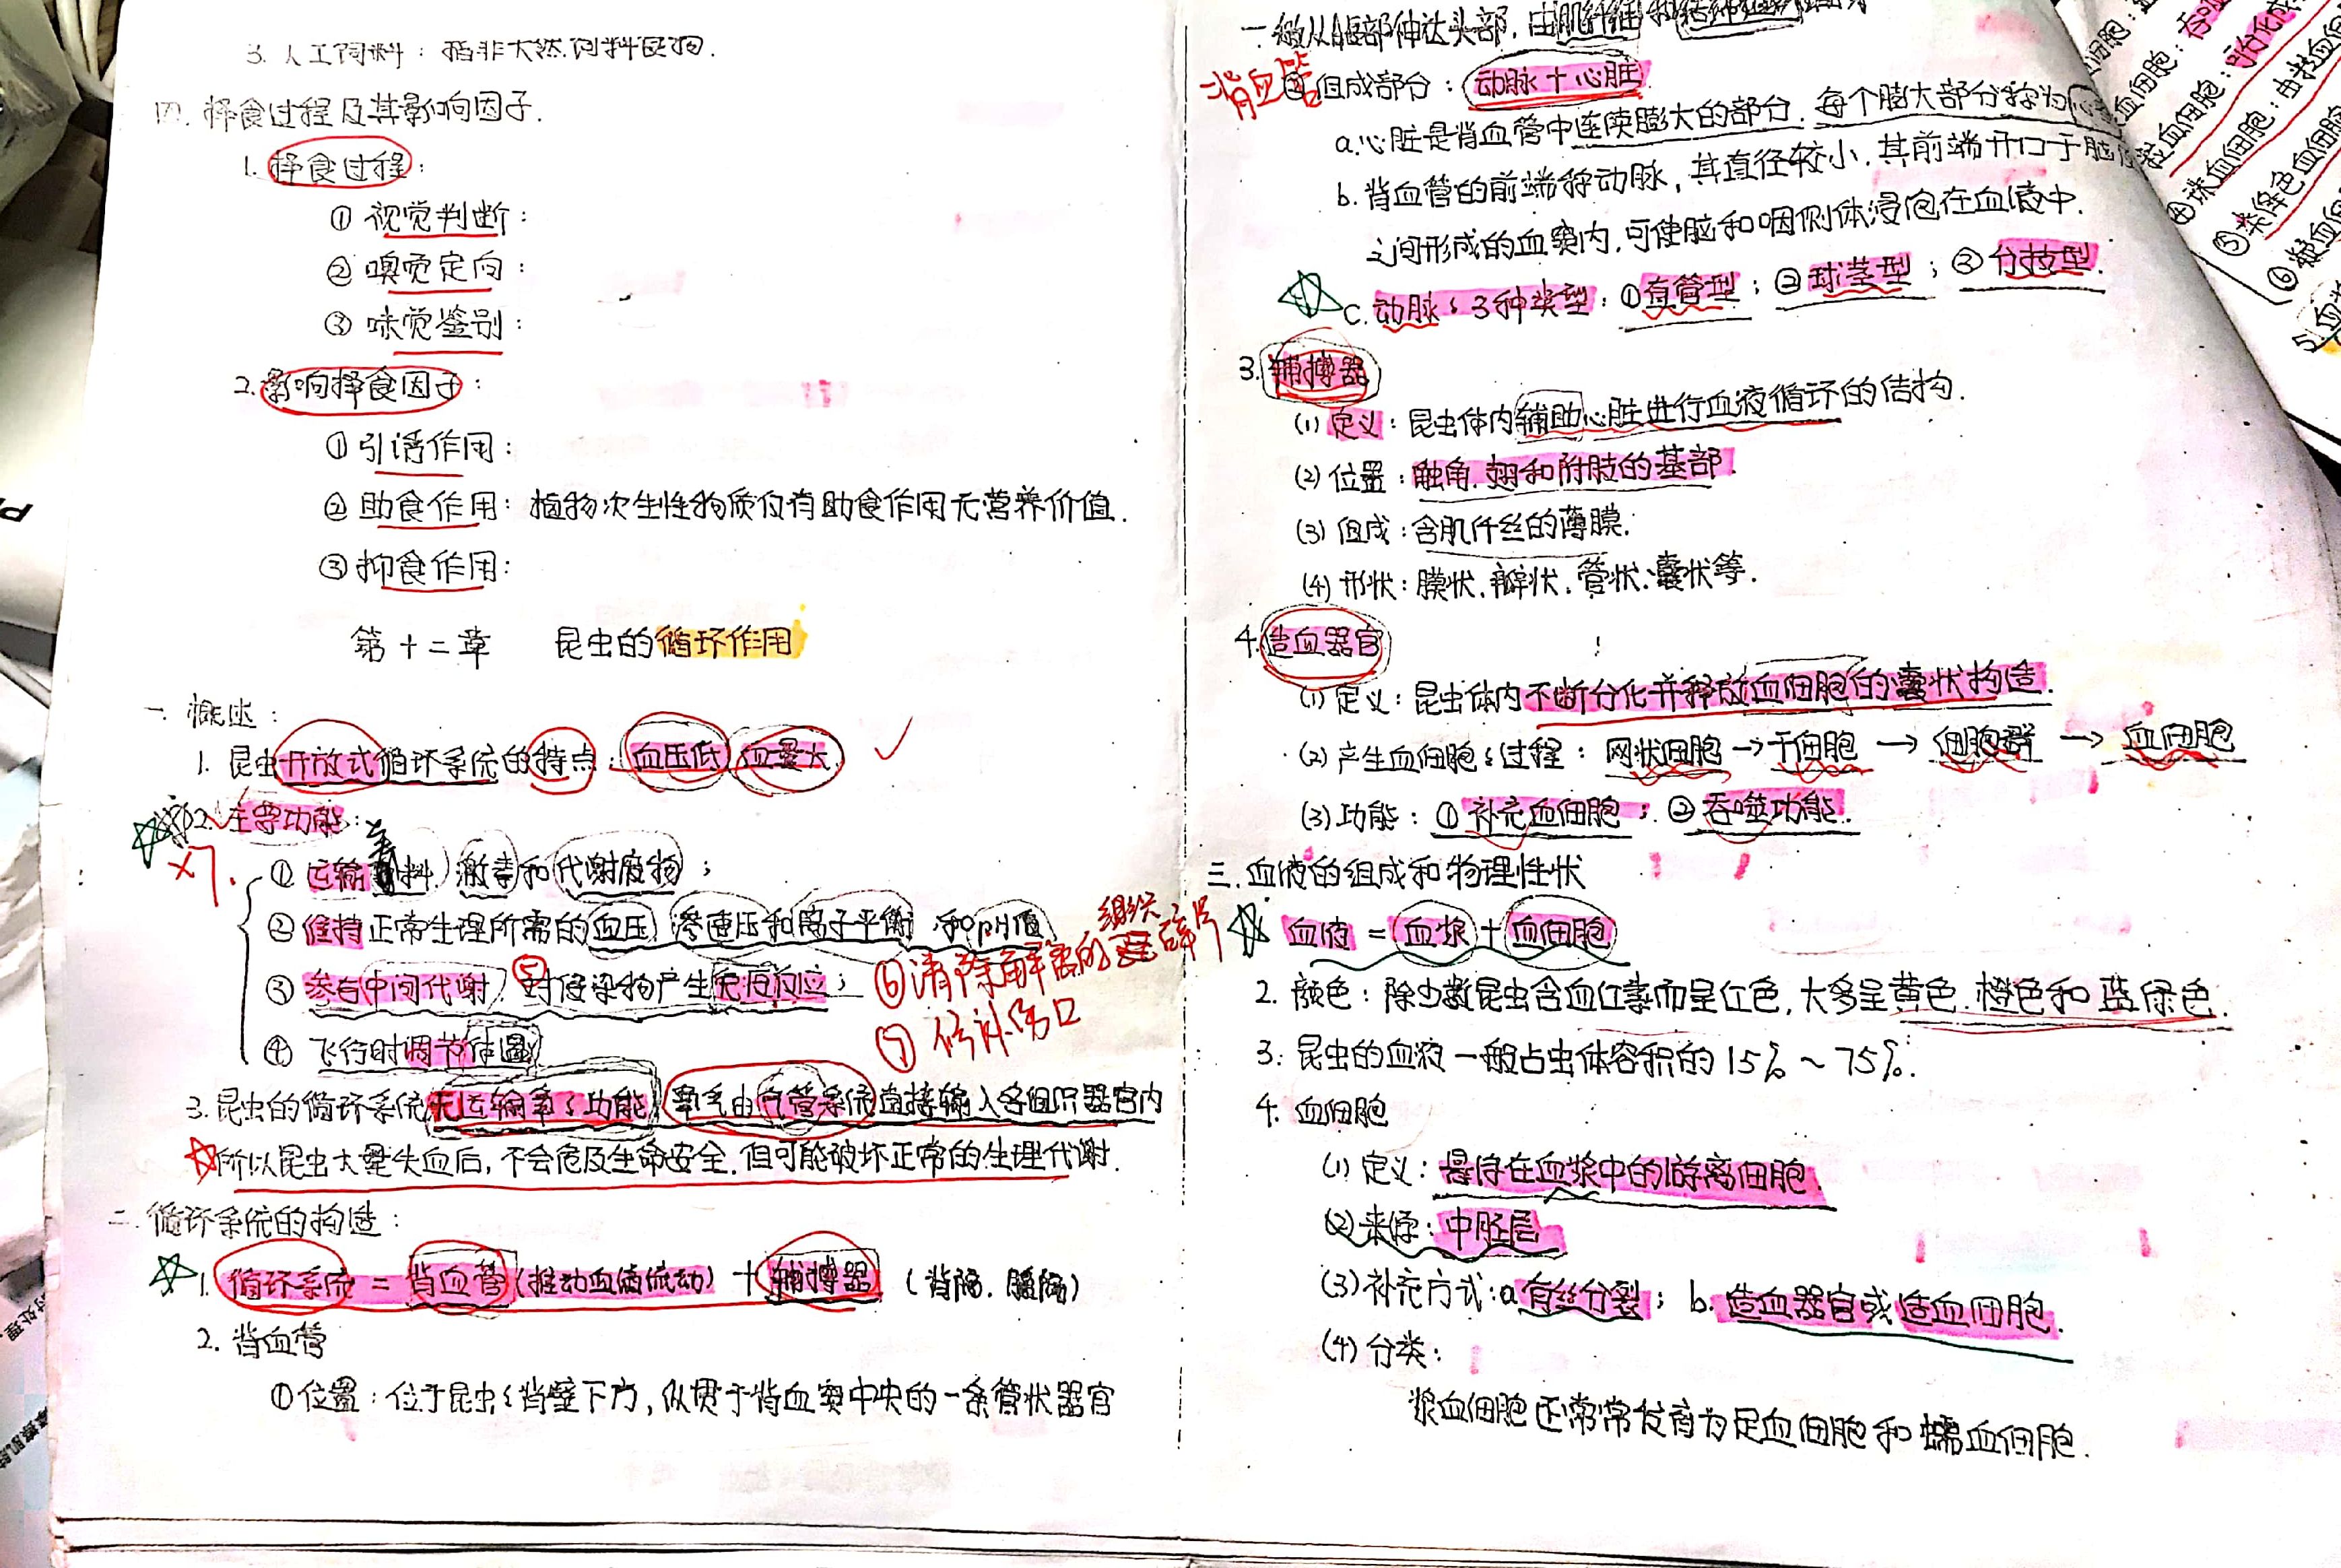 3. 人工饲料：指非天然饲料食物.
四. 择食过程及其影响因子.
1. 择食过程：
① 视觉判断：
② 嗅觉定向：
③ 味觉鉴别：
2. 影响择食因子：
① 引诱作用：
② 助食作用：植物次生性物质仅有助食作用无营养价值.
③ 抑食作用：
第十二章 昆虫的循环作用
一. 概述：
1. 昆虫开放式循环系统的特点：血压低 血量大
2. 主要功能：
×7.
① 运输养料、激素和代谢废物；
② 维持正常生理所需的血压、渗透压和离子平衡、和pH值
③ 参与中间代谢, ⑤对侵染物产生免疫反应；
⑥清除解离的组织碎片
④ 飞行时调节体温
⑦ 修补伤口
3. 昆虫的循环系统无运输氧的功能, 氧气由气管系统直接输入各组织器官内
所以昆虫大量失血后, 不会危及生命安全. 但可能破坏正常的生理代谢.
二. 循环系统的构造：
1. 循环系统 = 背血管(推动血液流动) + 辅搏器 (背膈. 腹膈)
2. 背血管
①位置：位于昆虫的背壁下方, 纵贯于背血窦中央的一条管状器官
一般从腹部伸达头部, 由肌纤维和结缔组织
背血管
②组成部分：动脉+心脏
a.心脏是背血管中连续膨大的部分. 每个膨大部分称为心室
b. 背血管的前端称动脉, 其直径较小. 其前端开口于脑
之间形成的血窦内, 可使脑和咽侧体浸包在血液中.
c. 动脉的3种类型：①直管型；②球茎型；③分枝型.
3. 辅搏器
(1) 定义：昆虫体内辅助心脏进行血液循环的结构.
(2) 位置：触角. 翅和附肢的基部.
(3) 组成：含肌纤丝的薄膜.
(4) 形状：膜状. 瓣状. 管状. 囊状等.
4. 造血器官
(1) 定义：昆虫体内不断分化并释放血细胞的囊状构造.
(2) 产生血细胞的过程：网状细胞→干细胞→细胞群→血细胞
(3) 功能：①补充血细胞；②吞噬功能.
三. 血液的组成和物理性状
血液 = 血浆 + 血细胞
2. 颜色：除少数昆虫含血红素而呈红色, 大多呈黄色. 橙色和蓝绿色.
3. 昆虫的血液一般占虫体容积的15%~75%.
4. 血细胞
(1) 定义：悬浮在血浆中的游离细胞.
(2) 来源：中胚层
(3) 补充方式：a 有丝分裂；b. 造血器官或造血细胞.
(4) 分类：
浆血细胞还常常发育为足血细胞和蠕血细胞.
④珠血细胞：由粒血细
⑤类绛色血细胞
⑥粒血细